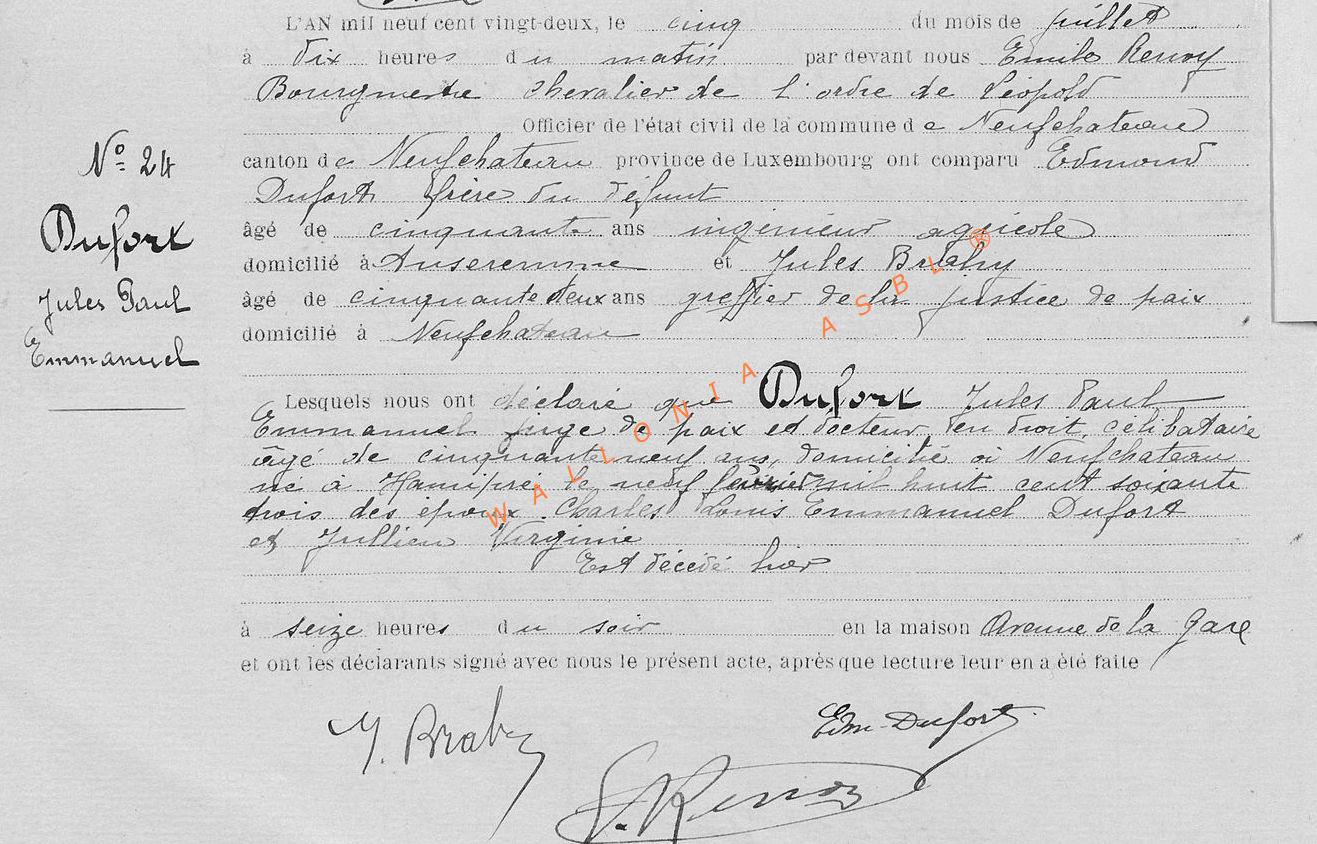 L'AN mil neuf cent vingt-deux, le cinq du mois de juillet
à dix heures du matin par devant nous Emile Renoy
Bourgmestre chevalier de l'ordre de Léopold
Officier de l'état civil de la commune de Neufchateau
canton de Neufchateau province de Luxembourg ont comparu Edmond
Dufort frère du défunt
âgé de cinquante ans ingénieur agricole
domicilié à Anseremme et Jules Brahy
âgé de cinquante deux ans greffier de la justice de paix
domicilié à Neufchateau
N° 24
Dufort
Jules Paul
Emmanuel
Lesquels nous ont déclaré que Dufort Jules Paul
Emmanuel juge de paix et docteur en droit, célibataire
âgé de cinquante neuf ans, domicilié à Neufchateau
né à Hamipré le neuf février mil huit cent soixante
trois des époux Charles Louis Emmanuel Dufort
et Jullien Virginie
Est décédé hier
à seize heures du soir en la maison Avenue de la Gare
et ont les déclarants signé avec nous le présent acte, après que lecture leur en a été faite
J. Brahy
Edm. Dufort
E. Renoy
WALLONIA ASBL ®